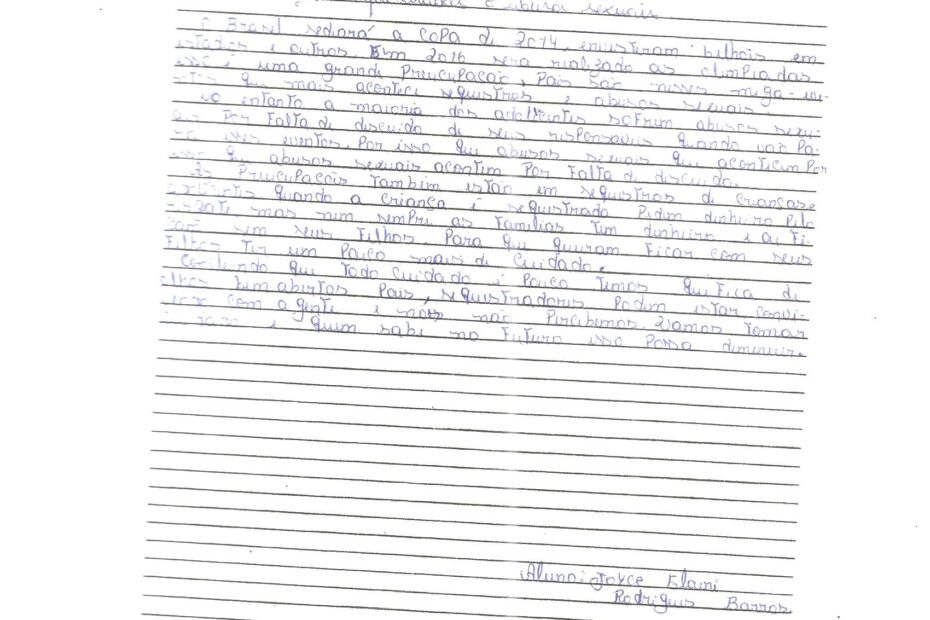 e abusos sexuais
O Brasil sediará a copa de 2014, envistiram bilhois em
estados e outros. Em 2016 sera realizado as olimpiadas
isso é uma grande Preucupacaõ, Pois saõ nesses mega-eve-
ntos que mais acontece sequestros e abusos sexuais.
No entanto a maioria dos adolecentes sofrem abusos sexu-
ais Por Falta de discuido de seus responsaveis quando vaõ Pa-
ra esses eventos. Por isso que abusos sexuais que acontecem Por
isso que abusos sexuais acontem Por falta de discuido.
As Preucupaçois Também estaõ em sequestros de crianças e
quando a criança é sequestrada Pedem dinheiro Pelo
resgate mas nem sempre as Familias Tem dinheiro e ai Fi-
caõ sem seus Filhos. Para que queiram Ficar com seus
Filhos Ter um Pouco mais de Cuidado.
Concluindo que Todo Cuidado é Pouco Temos que Fica de
olhos bem abertos Pois, sequestradores Podem estar convi-
vendo com a gente e nois naõ Percebemos. Vamos Tomar
e quem sabe no Futuro isso Possa diminuir.
Aluna: Joyce Elaini
Rodrigues Barros